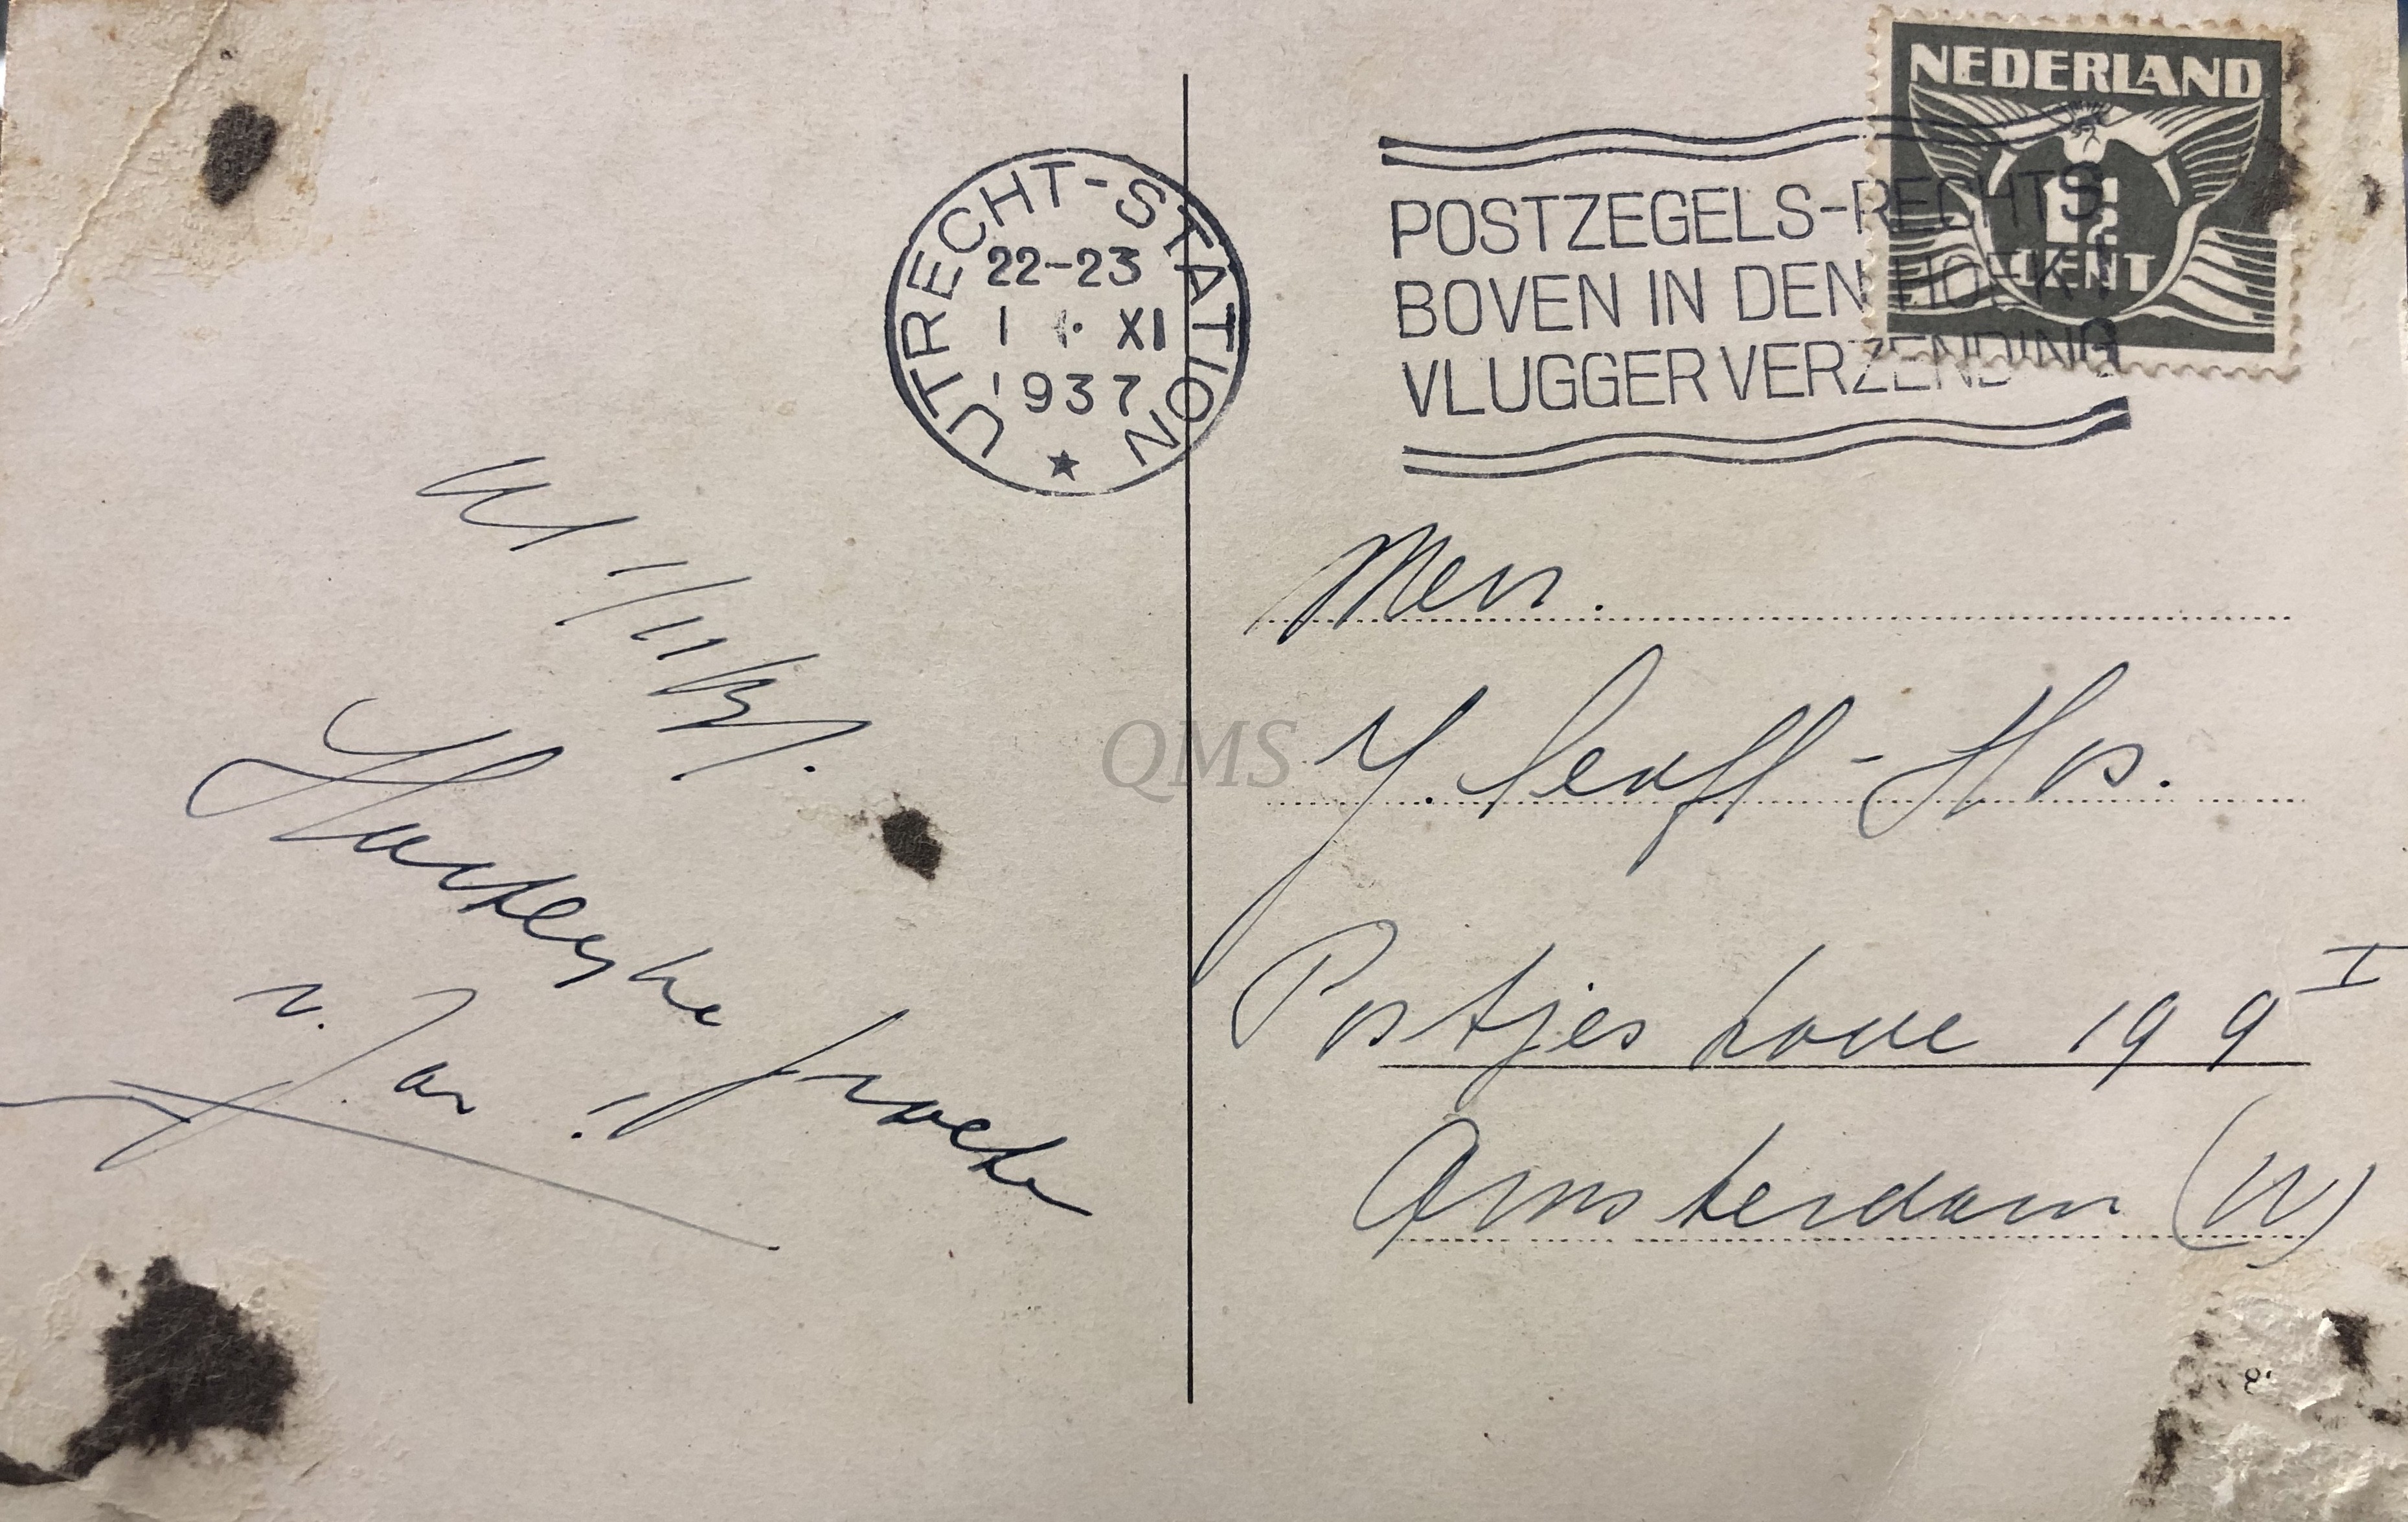 NEDERLAND
1½
CENT
UTRECHT-STATION
22-23
1 XI
1937
POSTZEGELS-RECHTS
BOVEN IN DEN HOEK!
VLUGGER VERZENDING
U 1/11/37.
Hartelyke groeten
v. Jan !!
QMS
Mevr.
Postjeskade 199 I
Amsterdam (W)